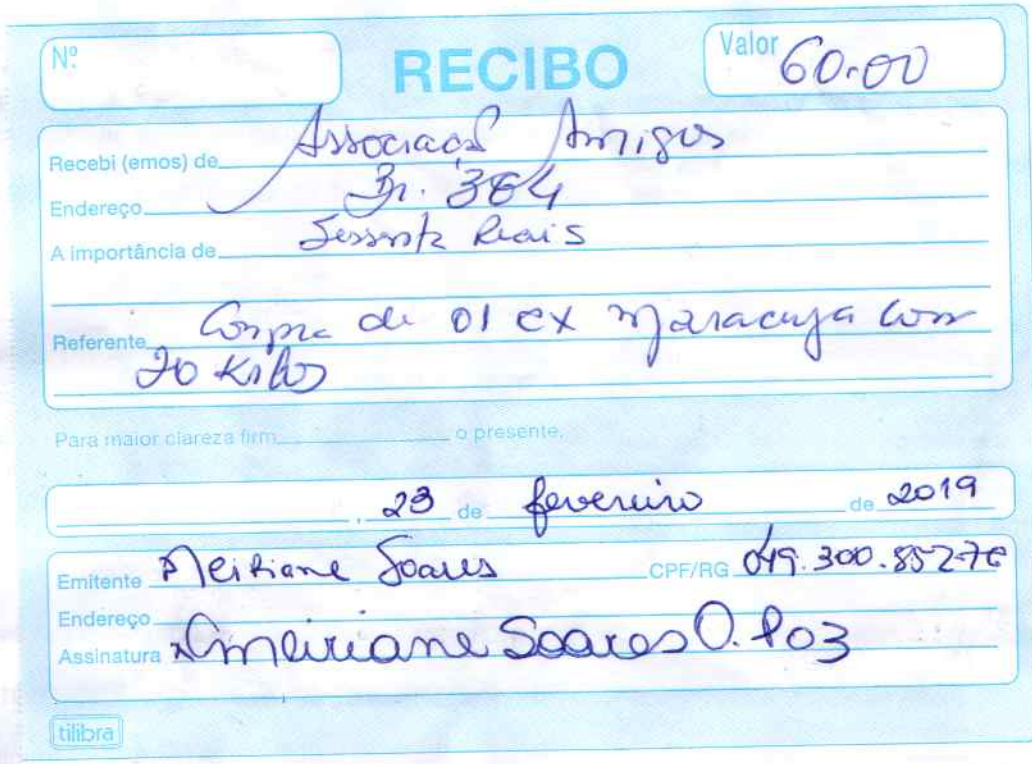 Nº
RECIBO
Valor 60.00
Recebi (emos) de Associaçaõ Amigos
Endereço Br. 364
A importância de Sessenta Reais
Referente Compra de 01 CX Maracuja com
20 Kilos
Para maior clareza firm o presente.
, 23 de fevereiro de 2019
Emitente Meiriane Soares CPF/RG 049.300.852-76
Endereço
Assinatura x Meiriane Soares O. Poz
tilibra